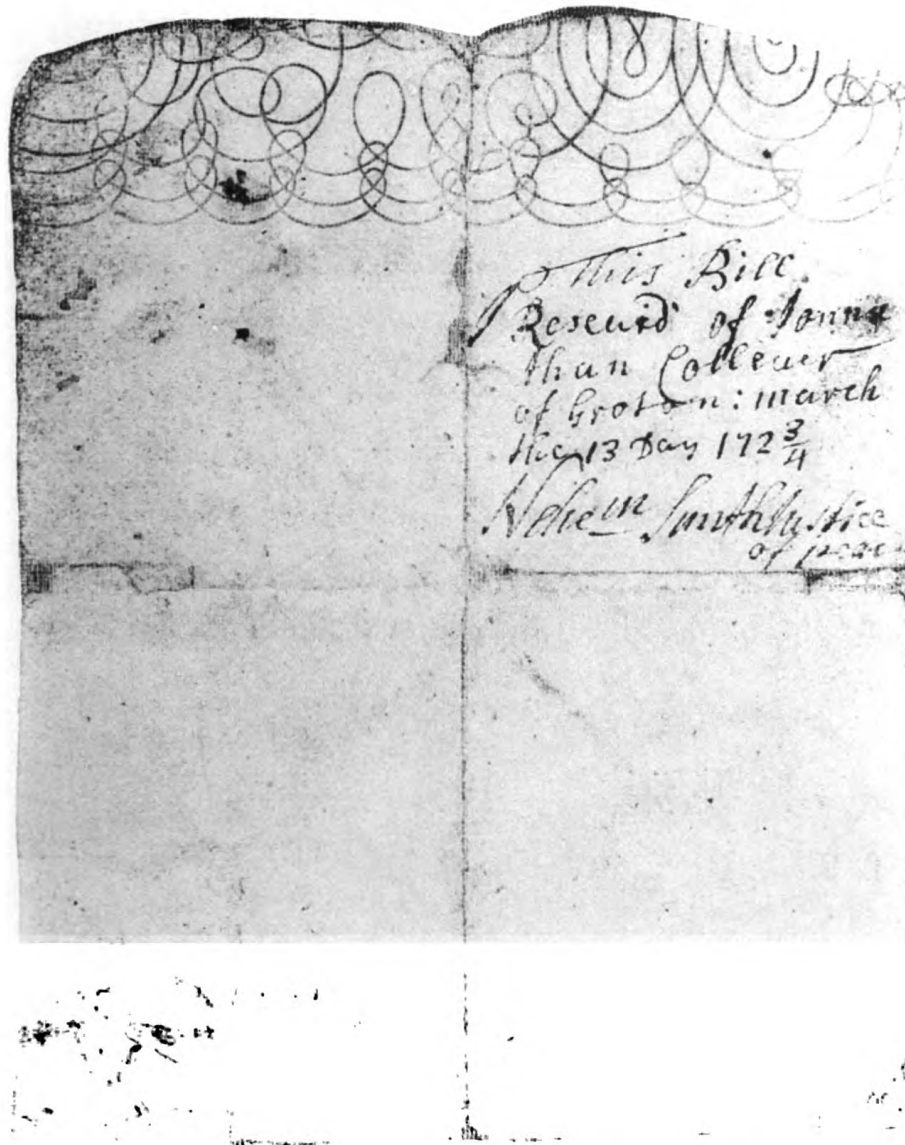 this Bill
Reseuid of Jonna
than Colleuer
of Groton: march
the 13 Day 172 3/4
Nehem Smith Justice
of peac